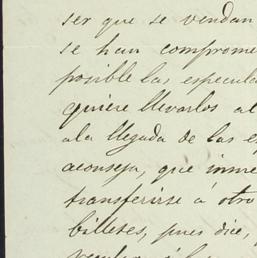 ser que se vendan
se han comprome
posible las especula
quiere llevarlos al
a la llegada de las es
aconseja, que inme
transferirse á otro
billetes, pues dice,